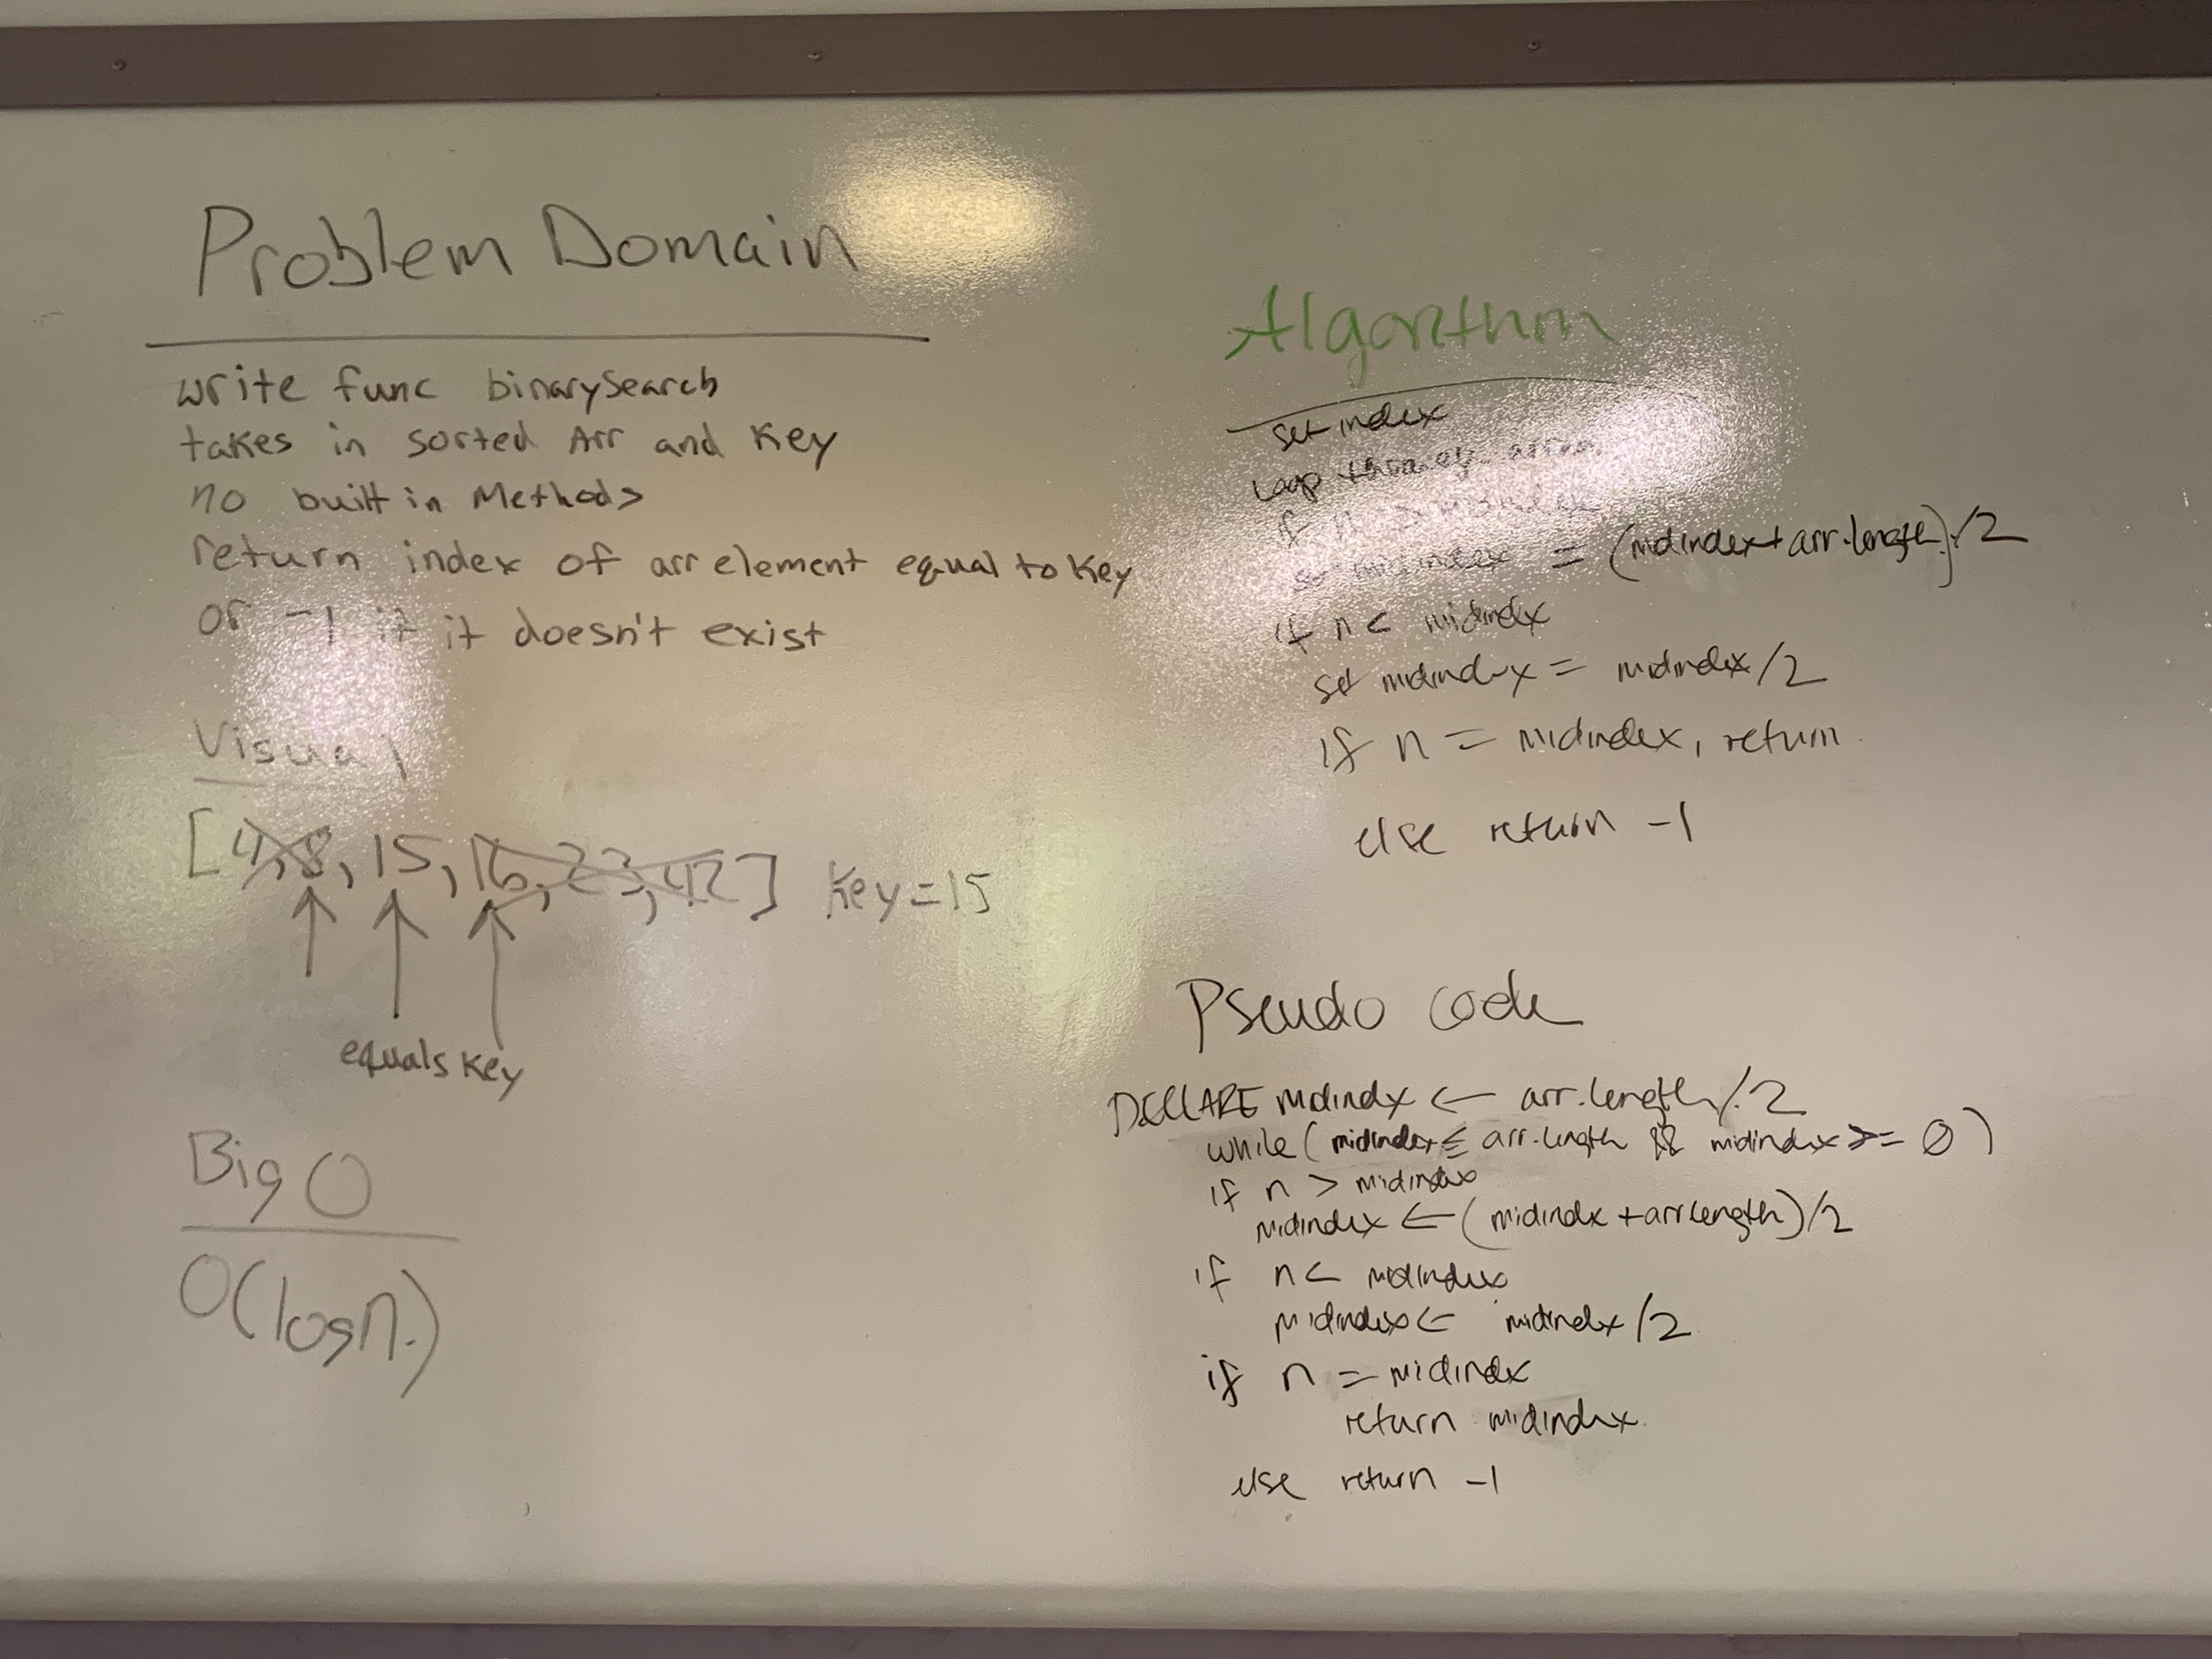 Problem Domain
write func binarySearch
takes in sorted Arr and Key
no built in Methods
return index of arr element equal to Key
or -1 if it doesn't exist
Visual
[4,8,15,16,23,42] Key=15
equals Key
Big O
O(logn.)
Algorithm
set index
loop through array
if n > midindex
set midindex = (midindex+arr.length)/2
if n < midindex
set midindex = midindex/2
if n = midindex, return
else return -1
Pseudo code
DECLARE midindx ← arr.length/2
while (midindex ≤ arr.length && midindex >= 0)
if n > midindex
midindex ← (midindx + arr.length)/2
if n < midindex
midindex ← midindex/2
if n = midindex
return midindex
else return -1